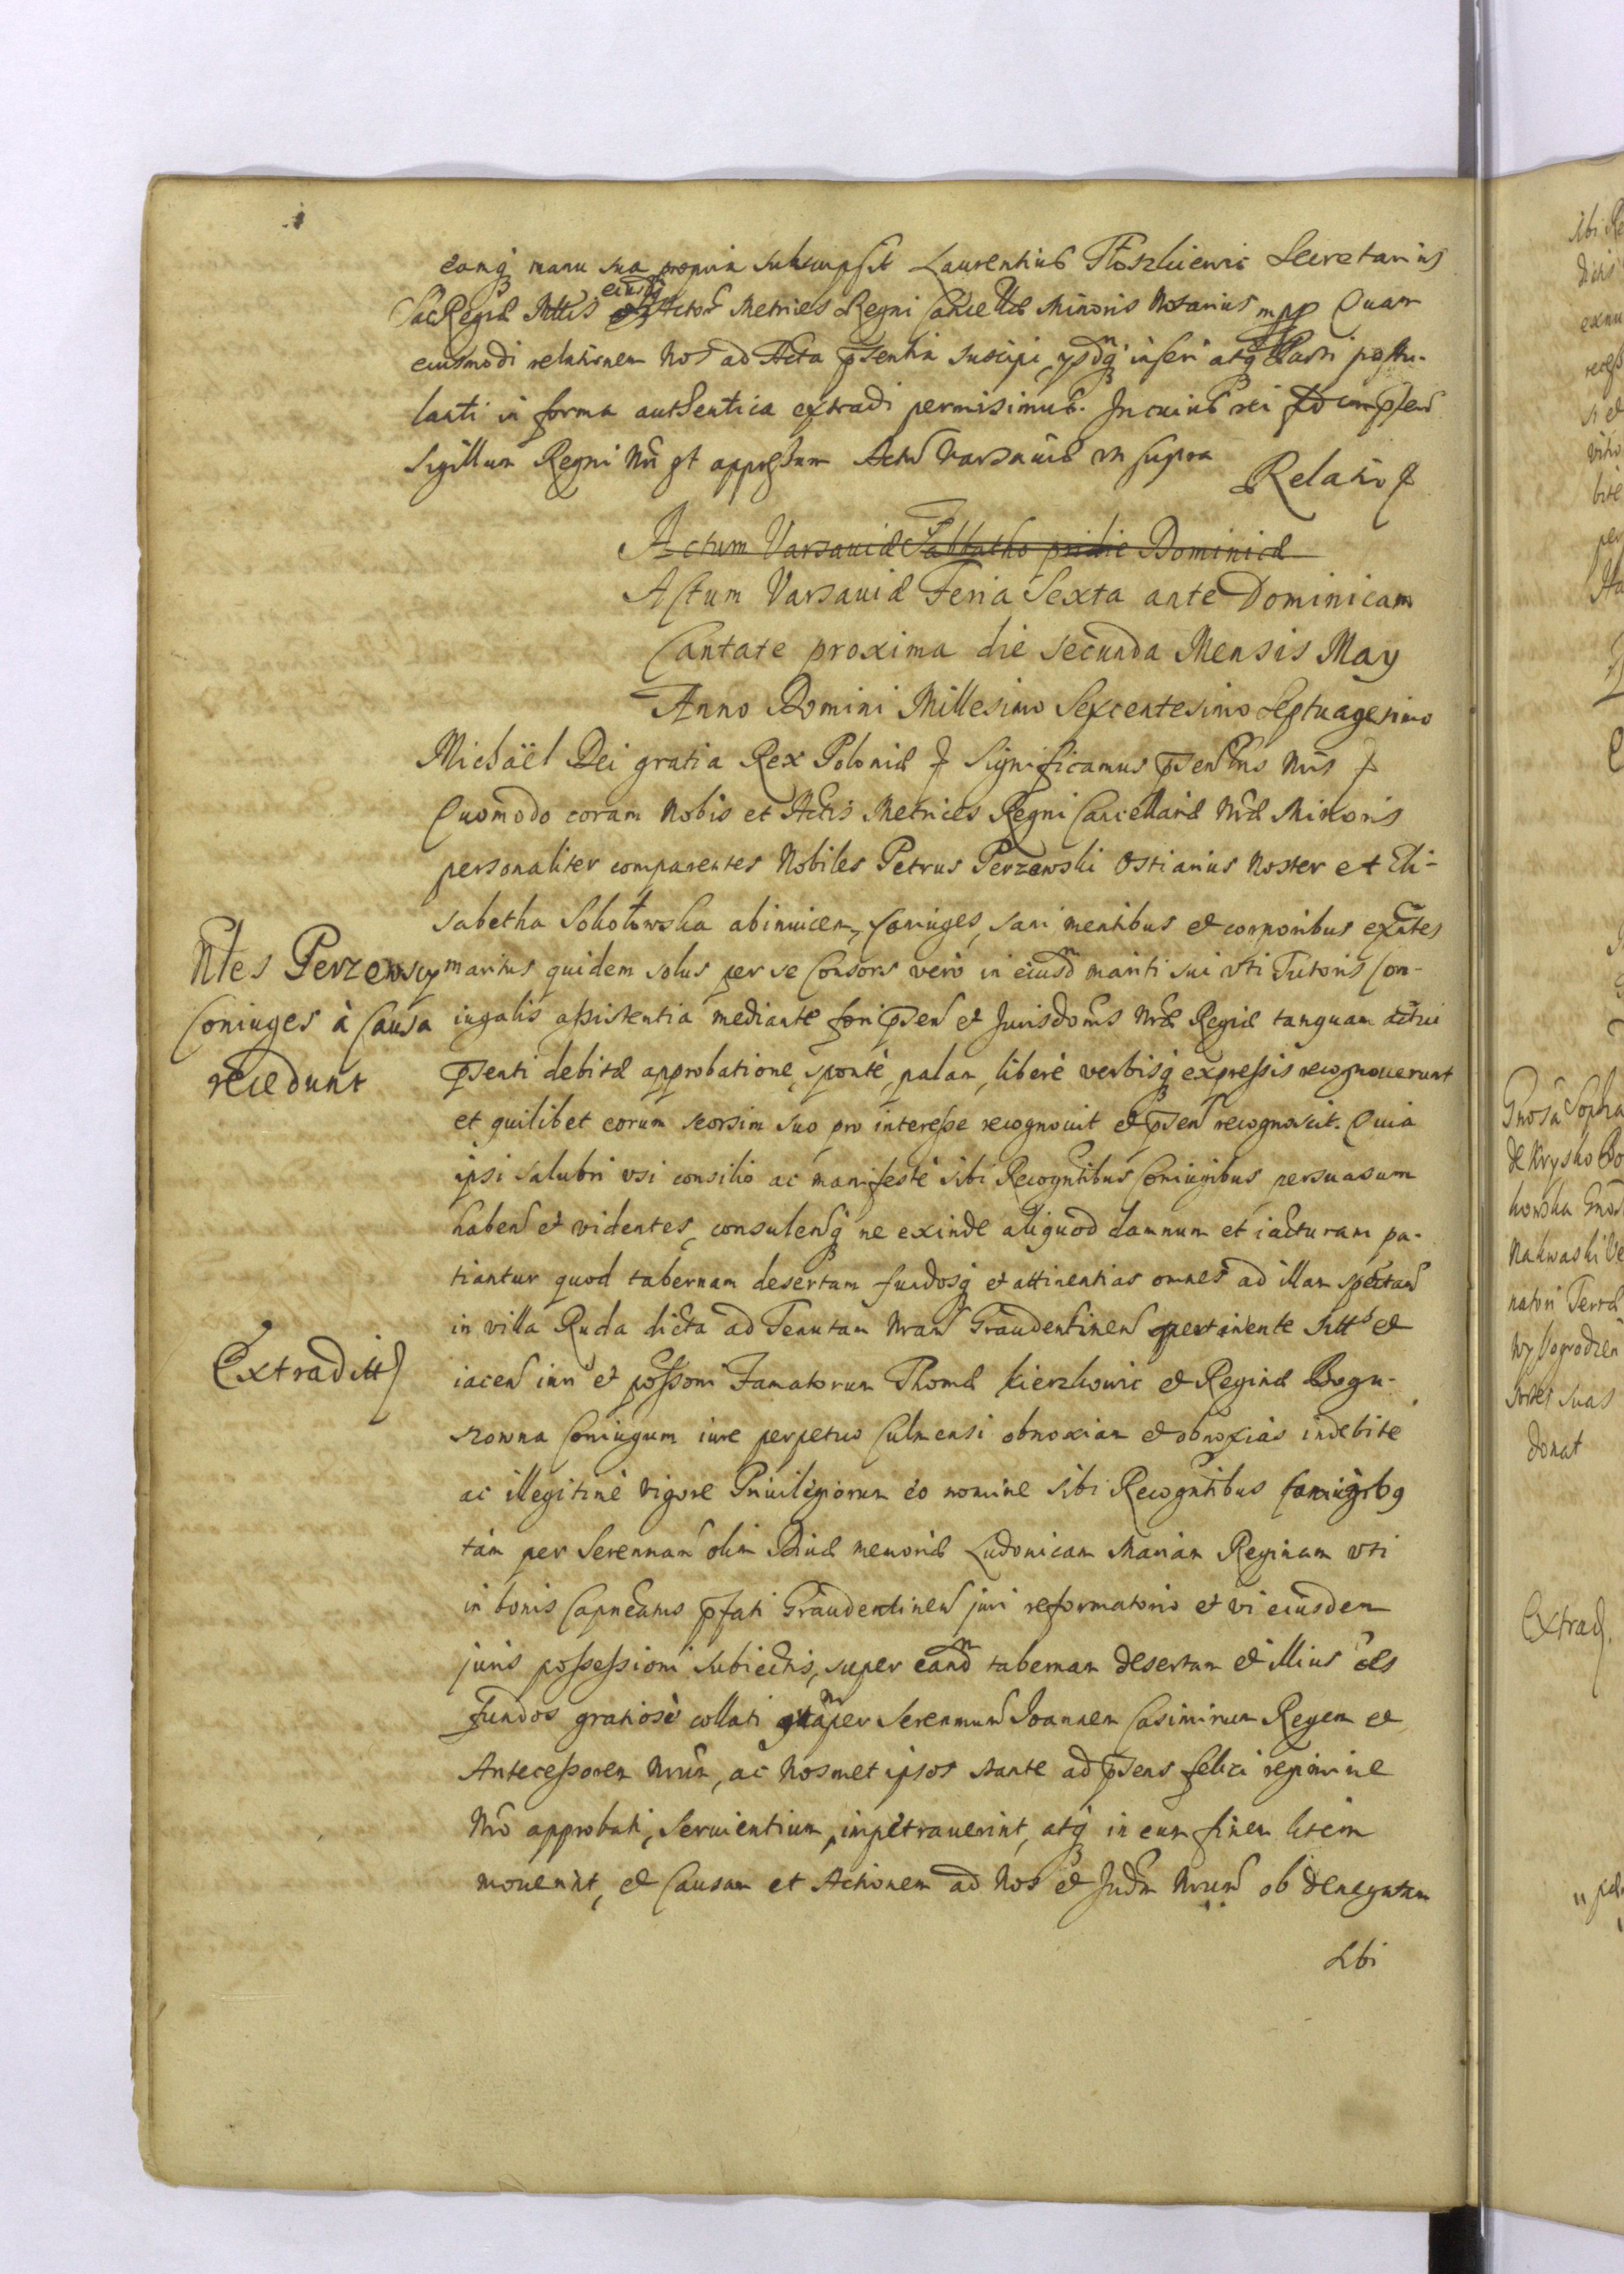 eamq manu sua propria subscripsit Laurentius Secretarius
Sac Regiae Mttis eiusdq Actor Metrices Regni Cancellae Minoris Notarius mpp Quam
eiusmodi relationem Nos ad Acta psentia suscipi, ysdq inseri atq Parti postu-
lanti in forma authentica extradi permisimus. In cuius rei fid psens
Sigillum Regni Nri est appressum Actu Varsaviae ut supra
Relatio
Actum Varsaviae Sabbatho pridie Dominicae
Actum Varsaviae Feria Sexta ante Dominicam
Cantate proxima die secunda Mensis May
Anno Domini Millesimo Sexcentesimo Septuagesimo
Michaël Dei gratia Rex Poloniae Significamus psentibus Nris
Quomodo coram Nobis et Actis Metrices Regni Cancellariae Nrae Minoris
personaliter comparentes Nobiles Petrus Perzewski Ostiarius Noster et Eli-
sabetha Sokołowska abinvicem Coniuges, sani mentibus et corporibus exntes
maritus quidem solus per se Consors vero in eiusd mariti sui uti Tutoris Con-
iugalis assistentia mediante fori psen et Jurisdonis Nrae Regiae tanquam actui
psenti debitae approbatione, sponte, palam, libere verbisq expressis recognoverunt
et quilibet eorum seorsim suo pro interesse recognovit et psen recognoscit. Quia
ipsi salubri usi consilio ac manifeste sibi Recogntibus Coniugibus persuasum
haben et videntes, consulenq ne exinde aliquod damnum et iacturam pa-
tiantur quod tabernam desertam fundosq et attinentias omnes ad illam spectan
in villa Ruda dicta ad Tenutam Nram Graudentinen pertinente sitts et
iacen iuri et possoni Famatorum Thomae Kierzkowic et Reginae Bogu-
szowna Coniugum iure perpetuo Culmensi obnoxiam et obnoxias indebite
ac illegitime vigore Privilegiorum eo nomine sibi Recogntibus Coniugibq
tam per Serennam olim Divae memoriae Ludovicam Mariam Reginam uti
in bonis Capneatus pfati Graudentinen juri reformatorio et vi eiusdem
juris possessioni subiectis, super eand tabernam desertam et illius oes
fundos gratiose collati qtam per Serenmum Joannem Casimirum Regem et
Antecessorem Nrum, ac Nosmet ipsos stante ad psens felici regimine
Nro approbati, servientium, impetraverint, atq in eum finem litem
moverint, et Causam et Actionem ad Nos et Judm Nrum ob denegatam
sibi
Ntles Perzewscy
Coniuges à Causa
recedunt
Extraditt
Gnosa Sophia
de Krysko Bo
kowska Gnos
Nakwaski Ve
natori Terrae
Wyssogrodzen
sortes suas
donat
Extrad.